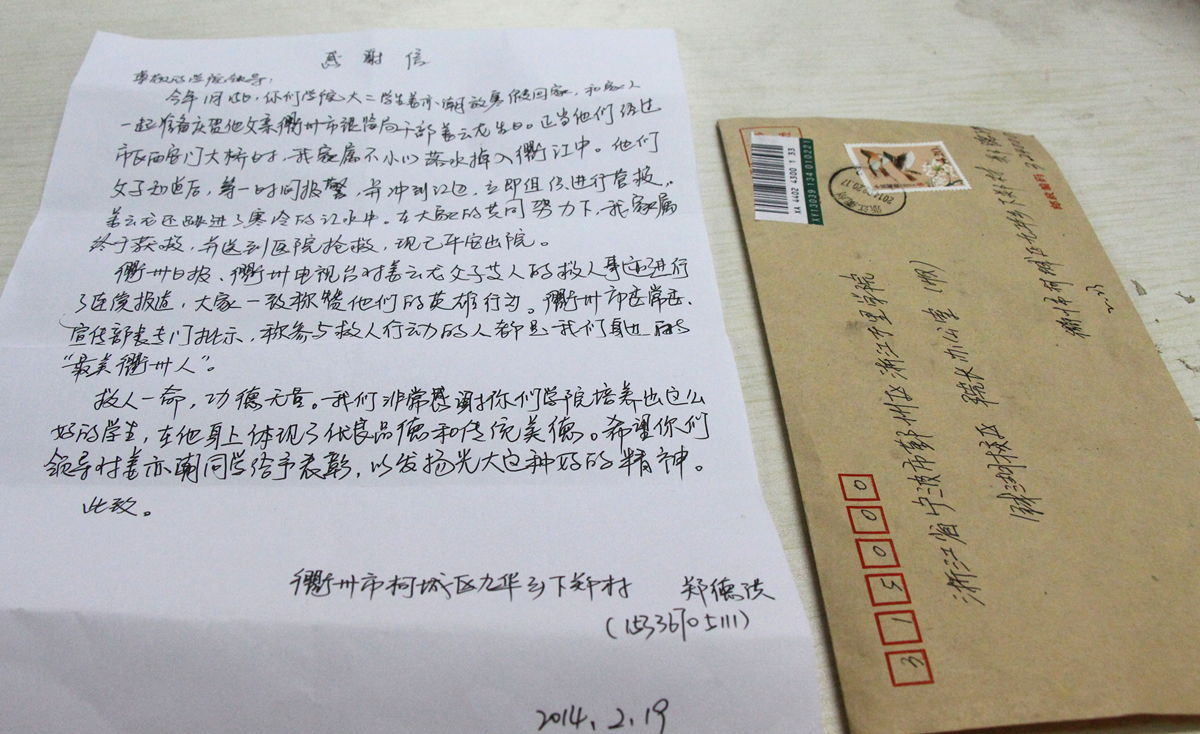 感谢信
尊敬的学院领导:
今年1月 ,你们学院大二学生姜亦 放寒假回家,和家人
一起准备庆贺他父亲衢州市 局干部姜云龙生日。正当他们经过
市区西安门大桥时,我家属不小心落水掉入衢江中。他们
父子知道后,第一时间报警,并冲到江边,立即组织进行营救。
姜云龙还跳进了寒冷的江水中。在大家的共同努力下,我家属
终于获救,并送到医院抢救,现已平安出院。
衢州日报、衢州电视台对姜云龙父子等人的救人事迹进行
了连续报道,大家一致称赞他们的英雄行为。衢州市委常委、
宣传部长专门批示,称参与救人行动的人都是我们身边 的
“最美衢州人”。
救人一命,功德无量。我们非常感谢你们学院培养出这么
好的学生,在他身上体现了优良品德和传统美德。希望你们
领导对姜亦 同学给予表彰,以发扬光大这种好的精神。
此致。
衢州市柯城区九华乡下郑村 郑德洪
2014.2.19
XA 4402 4300 1 33
XY13039 134 010221
邮政编码
衢州市柯城区九华乡下郑村
浙江省宁波市鄞州区浙江万里学院
钱湖校区 院长办公室(收)
315000